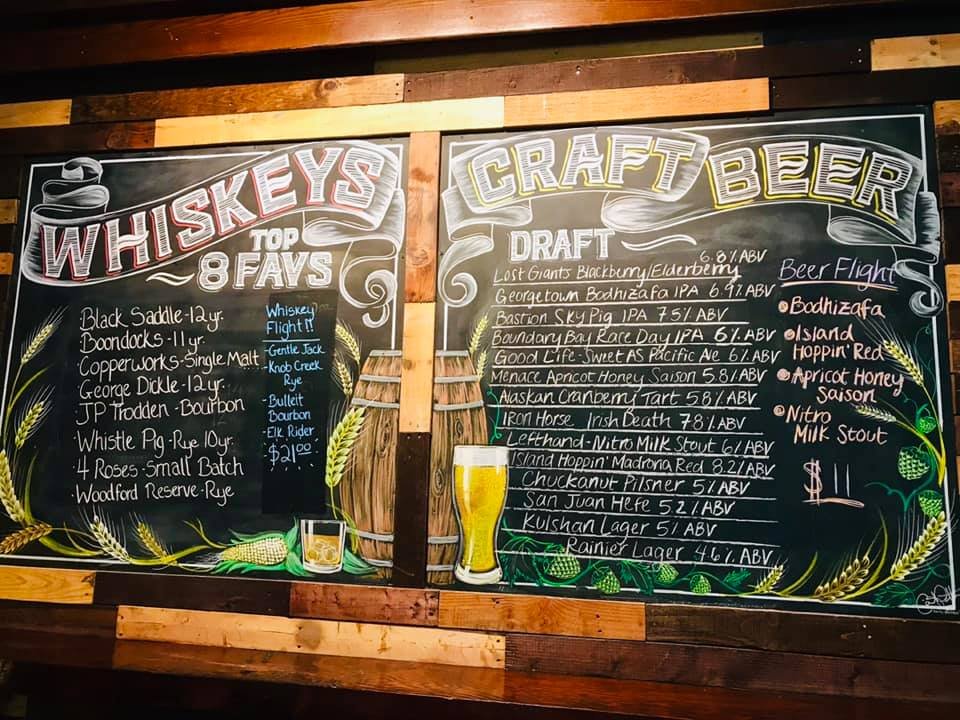 WHISKEYS
TOP
8 FAVS
Black Saddle-12 yr.
Boondocks-11 yr.
Copperworks-Single Malt
George Dickle-12 yr.
JP Trodden-Bourbon
Whistle Pig-Rye 10yr.
4 Roses-Small Batch
Woodford Reserve-Rye
Whiskey
Flight!!
-Gentle Jack
-Knob Creek
Rye
-Bulleit
Bourbon
-Elk Rider
$21.00
CRAFT BEER
DRAFT
6.8% ABV
Lost Giants Blackberry/Elderberry
Georgetown Bodhizafa IPA 6.9% ABV
Bastion Sky Pig IPA 7.5% ABV
Boundary Bay Race Day IPA 6% ABV
Good Life-Sweet AS Pacific Ale 6% ABV
Menace Apricot Honey Saison 5.8% ABV
Alaskan Cranberry Tart 5.8% ABV
Iron Horse Irish Death 7.8% ABV
Lefthand-Nitro Milk Stout 6% ABV
Island Hoppin' Madrona Red 8.2% ABV
Chuckanut Pilsner 5% ABV
San Juan Hefe 5.2% ABV
Kulshan Lager 5% ABV
Rainier Lager 4.6% ABV
Beer Flight
Bodhizafa
Island
Hoppin' Red
Apricot Honey
Saison
Nitro
Milk Stout
$11